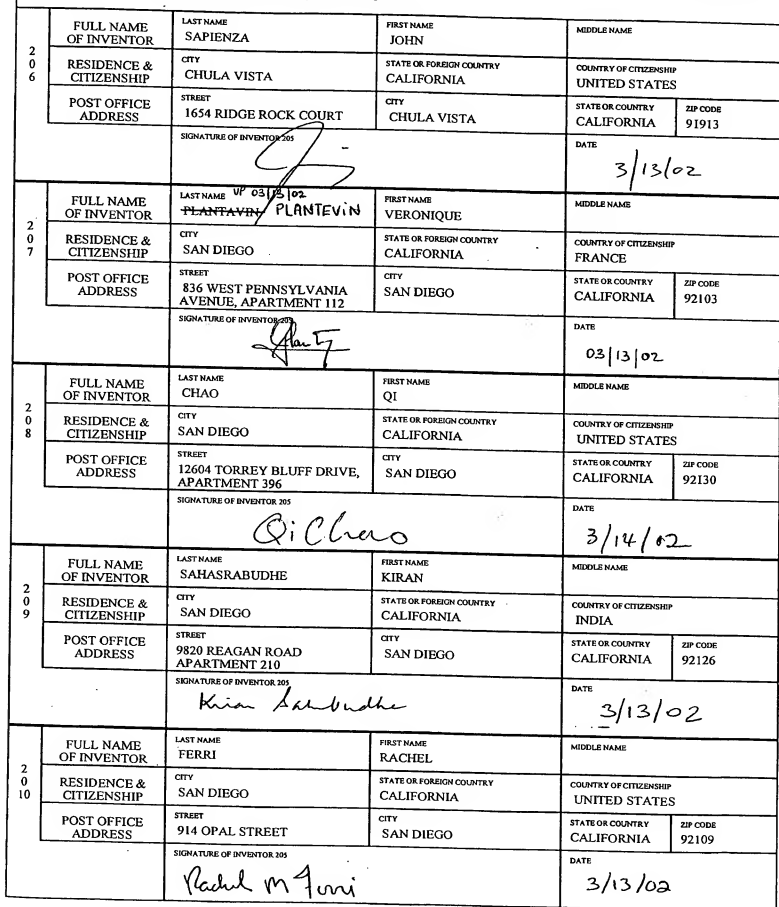 206
FULL NAME OF INVENTOR
LAST NAME
SAPIENZA
FIRST NAME
JOHN
MIDDLE NAME
RESIDENCE & CITIZENSHIP
CITY
CHULA VISTA
STATE OR FOREIGN COUNTRY
CALIFORNIA
COUNTRY OF CITIZENSHIP
UNITED STATES
POST OFFICE ADDRESS
STREET
1654 RIDGE ROCK COURT
CITY
CHULA VISTA
STATE OR COUNTRY
CALIFORNIA
ZIP CODE
91913
SIGNATURE OF INVENTOR 205
DATE
3/13/02
207
FULL NAME OF INVENTOR
LAST NAME VP 03/13/02
PLANTAVIN PLANTEVIN
FIRST NAME
VERONIQUE
MIDDLE NAME
RESIDENCE & CITIZENSHIP
CITY
SAN DIEGO
STATE OR FOREIGN COUNTRY
CALIFORNIA
COUNTRY OF CITIZENSHIP
FRANCE
POST OFFICE ADDRESS
STREET
836 WEST PENNSYLVANIA
AVENUE, APARTMENT 112
CITY
SAN DIEGO
STATE OR COUNTRY
CALIFORNIA
ZIP CODE
92103
SIGNATURE OF INVENTOR 205
DATE
03|13|02
208
FULL NAME OF INVENTOR
LAST NAME
CHAO
FIRST NAME
QI
MIDDLE NAME
RESIDENCE & CITIZENSHIP
CITY
SAN DIEGO
STATE OR FOREIGN COUNTRY
CALIFORNIA
COUNTRY OF CITIZENSHIP
UNITED STATES
POST OFFICE ADDRESS
STREET
12604 TORREY BLUFF DRIVE,
APARTMENT 396
CITY
SAN DIEGO
STATE OR COUNTRY
CALIFORNIA
ZIP CODE
92130
SIGNATURE OF INVENTOR 205
Qi Chao
DATE
3/14/02
209
FULL NAME OF INVENTOR
LAST NAME
SAHASRABUDHE
FIRST NAME
KIRAN
MIDDLE NAME
RESIDENCE & CITIZENSHIP
CITY
SAN DIEGO
STATE OR FOREIGN COUNTRY
CALIFORNIA
COUNTRY OF CITIZENSHIP
INDIA
POST OFFICE ADDRESS
STREET
9820 REAGAN ROAD
APARTMENT 210
CITY
SAN DIEGO
STATE OR COUNTRY
CALIFORNIA
ZIP CODE
92126
SIGNATURE OF INVENTOR 205
Kiran
DATE
3/13/02
2010
FULL NAME OF INVENTOR
LAST NAME
FERRI
FIRST NAME
RACHEL
MIDDLE NAME
RESIDENCE & CITIZENSHIP
CITY
SAN DIEGO
STATE OR FOREIGN COUNTRY
CALIFORNIA
COUNTRY OF CITIZENSHIP
UNITED STATES
POST OFFICE ADDRESS
STREET
914 OPAL STREET
CITY
SAN DIEGO
STATE OR COUNTRY
CALIFORNIA
ZIP CODE
92109
SIGNATURE OF INVENTOR 205
Rachel M Ferri
DATE
3/13/02